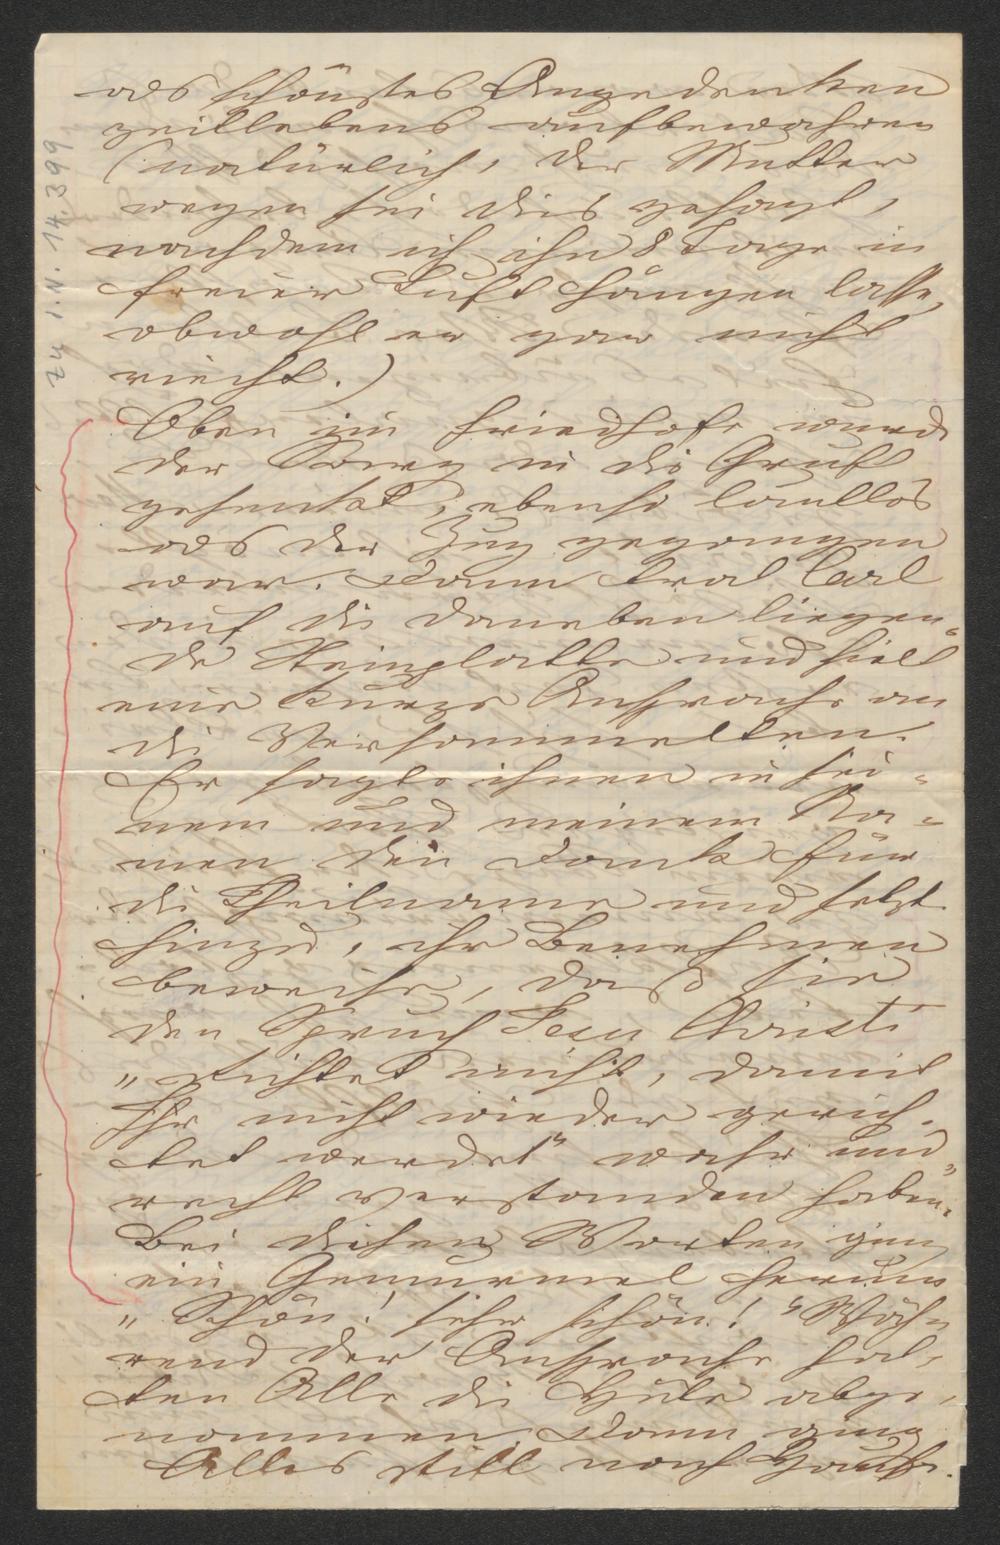 als schönstes Angedenken
zeitlebens aufbewahren
(natürlich, der Mutter
wegen sei dies gesagt,
nachdem ich ihn 8 Tage in
freier Luft hängen lasse,
obwohl er gar nicht
riecht.)
Oben im Friedhofe wurde
der Sarg in die Gruft
gesenkt, ebenso lautlos
als der Zug gegangen
war. Dann trat Carl
auf die daneben liegen-
de Steinplatte und hielt
eine kurze Ansprache an
die Versammelten.
Er sagte ihnen in sei-
nem und meinem Na-
men den Dank für
die Theilname und setzt
hinzu, ihr Benehmen
beweise, daß sie
den Spruch Jesu Christi
„Richtet nicht, damit
Ihr nicht wieder gerich-
tet werdet" wahr und
recht verstanden haben.
Bei diesen Worten ging
ein Gemurmel herum
„Schön! sehr schön!" Wäh-
rend der Ansprache hat-
ten Alle die Hüte abge-
nommen. Dann ging
Alles still nach Hause.
zu I.N. 14.399